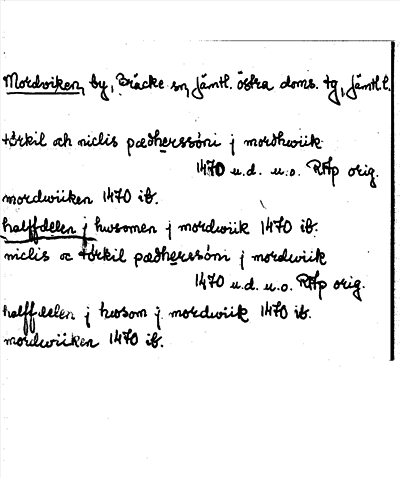 Mordviken, by, Bräcke sn, Jämtl. östra doms. tg, Jämtl. l.
törkil och niclis pædherssöni j mordhwiik
1470 u.d. u.o. RAp orig.
mordwiiken 1470 ib.
halffdelen j hwsomen j mordwiik 1470 ib.
niclis oc törkil pædherssöni j mordwiik
1470 u.d. u.o. RAp orig.
halffdelen j hwsom j mordwiik 1470 ib.
mordwiiken 1470 ib.